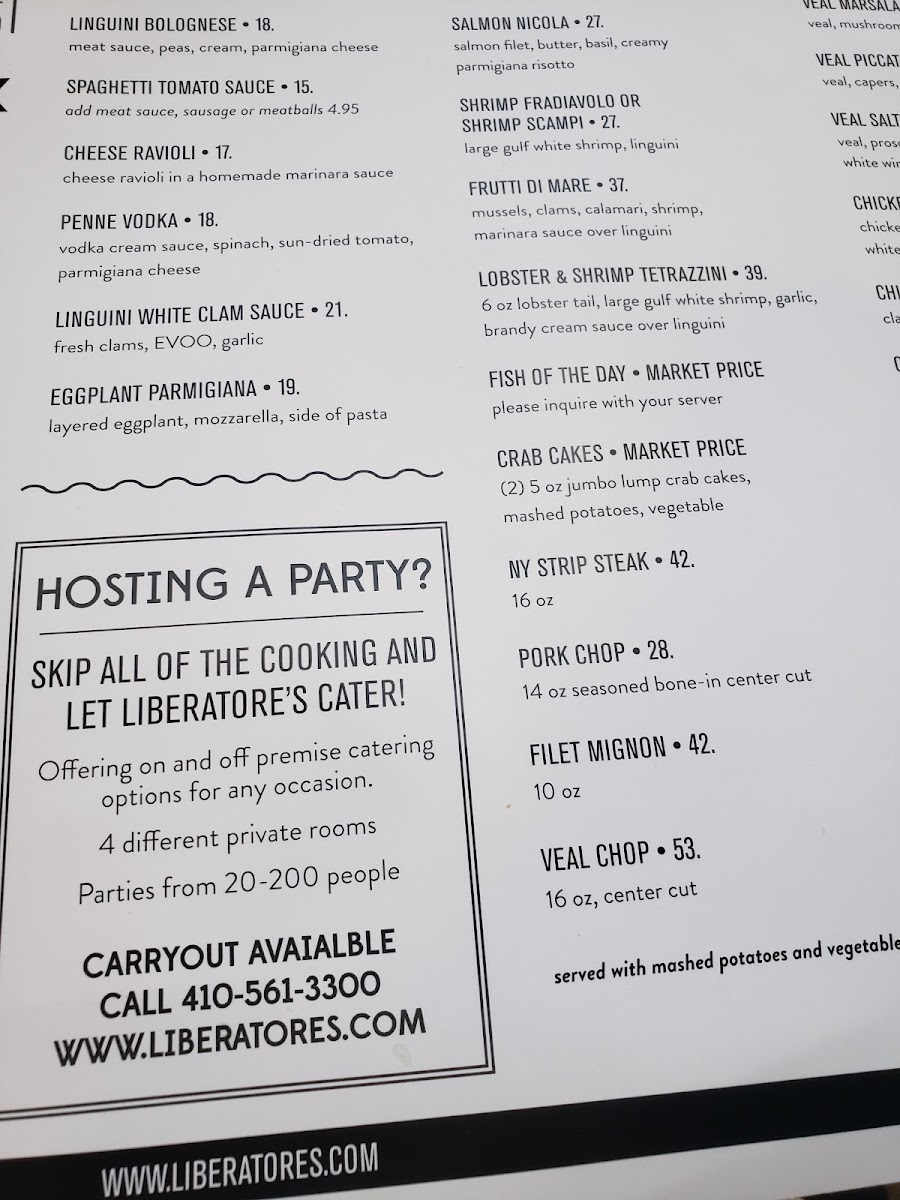 LINGUINI BOLOGNESE • 18.
meat sauce, peas, cream, parmigiana cheese
SPAGHETTI TOMATO SAUCE • 15.
add meat sauce, sausage or meatballs 4.95
CHEESE RAVIOLI • 17.
cheese ravioli in a homemade marinara sauce
PENNE VODKA • 18.
vodka cream sauce, spinach, sun-dried tomato,
parmigiana cheese
LINGUINI WHITE CLAM SAUCE • 21.
fresh clams, EVOO, garlic
EGGPLANT PARMIGIANA • 19.
layered eggplant, mozzarella, side of pasta
HOSTING A PARTY?
SKIP ALL OF THE COOKING AND
LET LIBERATORE'S CATER!
Offering on and off premise catering
options for any occasion.
4 different private rooms
Parties from 20-200 people
CARRYOUT AVAIALBLE
CALL 410-561-3300
WWW.LIBERATORES.COM
SALMON NICOLA • 27.
salmon filet, butter, basil, creamy
parmigiana risotto
SHRIMP FRADIAVOLO OR
SHRIMP SCAMPI • 27.
large gulf white shrimp, linguini
FRUTTI DI MARE • 37.
mussels, clams, calamari, shrimp,
marinara sauce over linguini
LOBSTER & SHRIMP TETRAZZINI • 39.
6 oz lobster tail, large gulf white shrimp, garlic,
brandy cream sauce over linguini
FISH OF THE DAY • MARKET PRICE
please inquire with your server
CRAB CAKES • MARKET PRICE
(2) 5 oz jumbo lump crab cakes,
mashed potatoes, vegetable
NY STRIP STEAK • 42.
16 oz
PORK CHOP • 28.
14 oz seasoned bone-in center cut
FILET MIGNON • 42.
10 oz
VEAL CHOP • 53.
16 oz, center cut
served with mashed potatoes and vegetable
VEAL MARSALA
veal, mushroom
VEAL PICCAT
veal, capers,
VEAL SALT
veal, prosc
white win
CHICKE
chicke
white
CHI
cla
WWW.LIBERATORES.COM